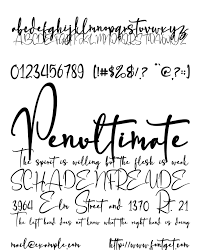 abcdefghijklmnopqrstuvwxyz
ABCDEFGHIJKLMNOPQRSTUVWXYZ
0123456789 [!#$%&/.? "@?:;]
Penultimate
The spirit is willing but the flesh is weak
SCHADENFREUDE
3964 Elm Street and 1370 Rt. 21
The left hand does not know what the right hand is doing.
mail@example.com http://www.fontget.com